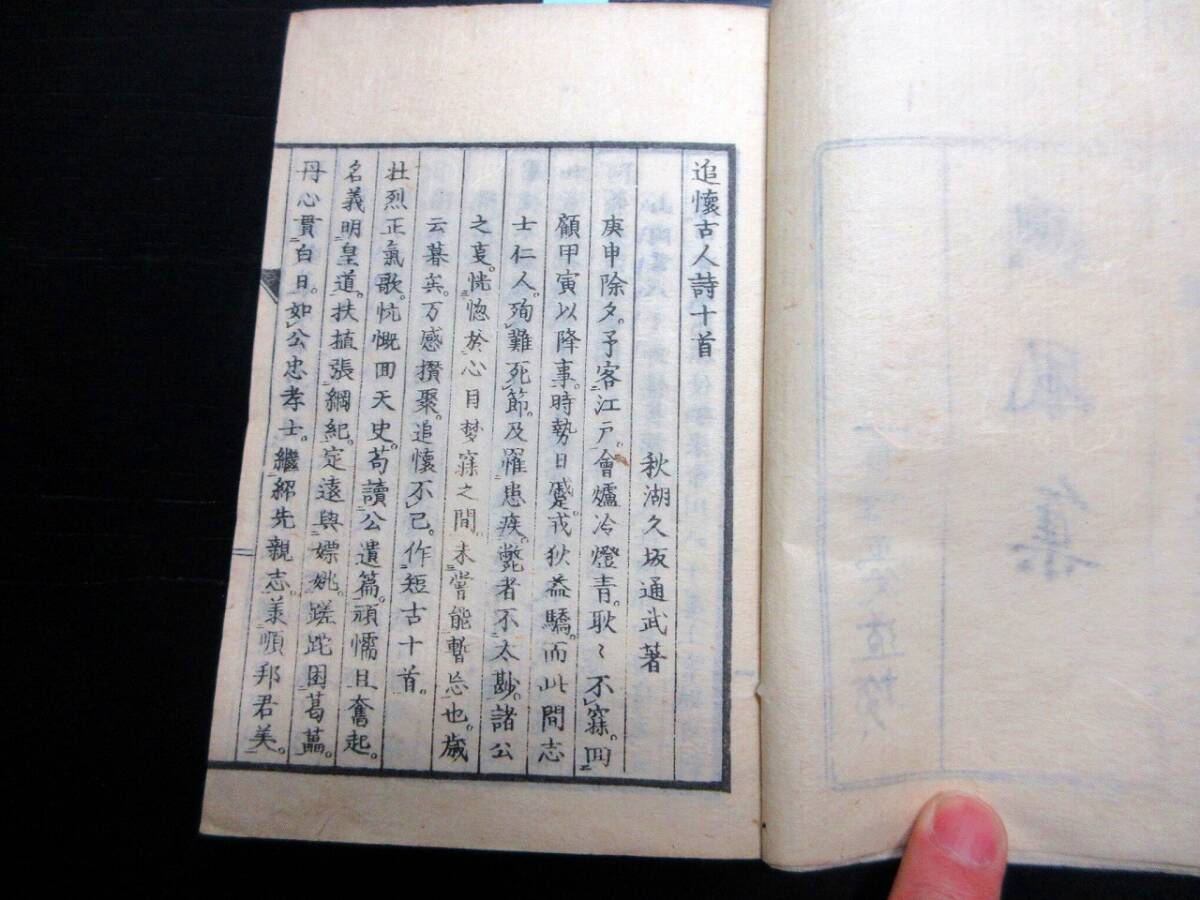 追懷古人詩十首
秋湖久坂通武著
庚申除夕。予客江戸。會爐冷燈青。耿〻不寐。回
顧甲寅以降事。時勢日蹙。戎狄益驕。而此間志
士仁人。殉難死節。及罹患疾。斃者不太尠。諸公
之。恍惚於心目夢寐之間。未嘗能暫忘也。歳
云暮矣。万感攢聚。追懷不已。作短古十首。
壯烈正氣歌。忼慨回天史。苟讀公遺篇。頑懦且奮起。
名義明皇道。扶植張綱紀。定遠與嫖姚。蹉跎困葛藟。
丹心貫白日。如公忠孝士。繼紹先親志。義順邦君美。